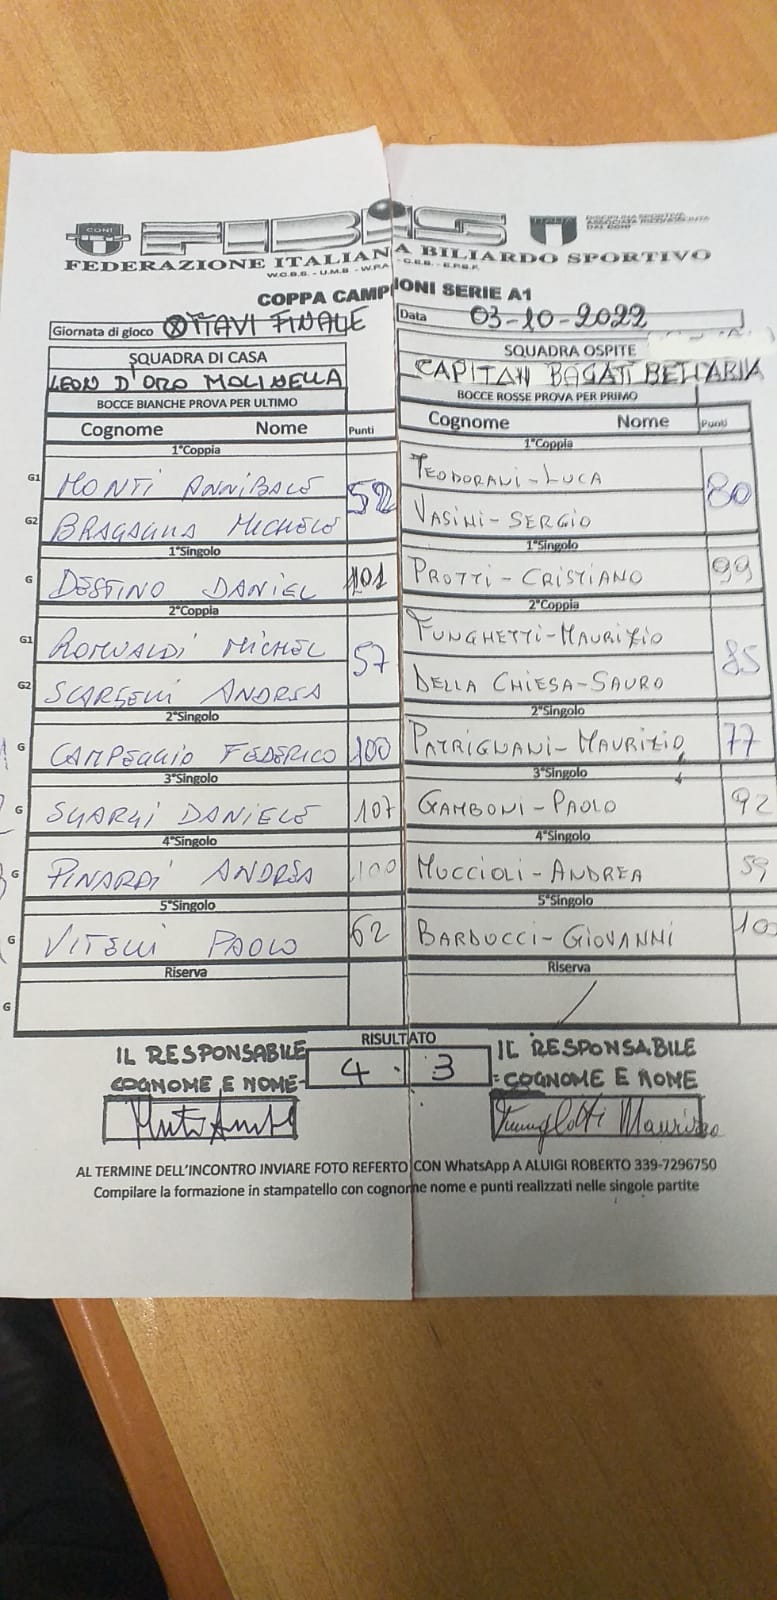 CONI FIBiS ITALIA DISCIPLINA SPORTIVA ASSOCIATA RICONOSCIUTA DAL CONI
FEDERAZIONE ITALIANA BILIARDO SPORTIVO
W.C.B.S. - U.M.B. - W.P.A. - C.E.B. - E.P.B.F.
COPPA CAMPIONI SERIE A1
Giornata di gioco OTTAVI FINALE Data 03-10-2022
SQUADRA DI CASA SQUADRA OSPITE
LEON D'ORO MOLINELLA CAPITAN BAGATI BELLARIA
BOCCE BIANCHE PROVA PER ULTIMO BOCCE ROSSE PROVA PER PRIMO
Cognome Nome Punti Cognome Nome Punti
1°Coppia 1°Coppia
G1 MONTI ANNIBALE 52 TEODORANI-LUCA 80
G2 BRAGAGNA MICHELE VASINI-SERGIO
1°Singolo 1°Singolo
G DESTINO DANIEL 101 PROTTI-CRISTIANO 99
2°Coppia 2°Coppia
G1 ROMUALDI MICHEL 57 FUNGHETTI-MAURIZIO 85
G2 SCARSELLI ANDREA DELLA CHIESA-SAURO
2°Singolo 2°Singolo
G CAMPEGGIO FEDERICO 100 PATRIGNANI-MAURIZIO 77
3°Singolo 3°Singolo
G SGARGI DANIELE 107 GAMBONI-PAOLO 92
4°Singolo 4°Singolo
G PINARDI ANDREA 100 MUCCIOLI-ANDREA 59
5°Singolo 5°Singolo
G VITELLI PAOLO 62 BARDUCCI-GIOVANNI
Riserva Riserva
G
RISULTATO
IL RESPONSABILE 4 - 3 IL RESPONSABILE
COGNOME E NOME- =COGNOME E NOME
AL TERMINE DELL'INCONTRO INVIARE FOTO REFERTO CON WhatsApp A ALUIGI ROBERTO 339-7296750
Compilare la formazione in stampatello con cognome nome e punti realizzati nelle singole partite